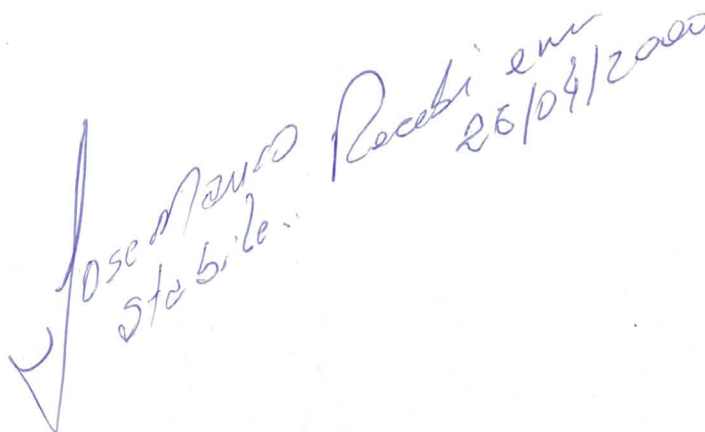 Jose Mauro Recebi em
Stabile.. 26/04/2000